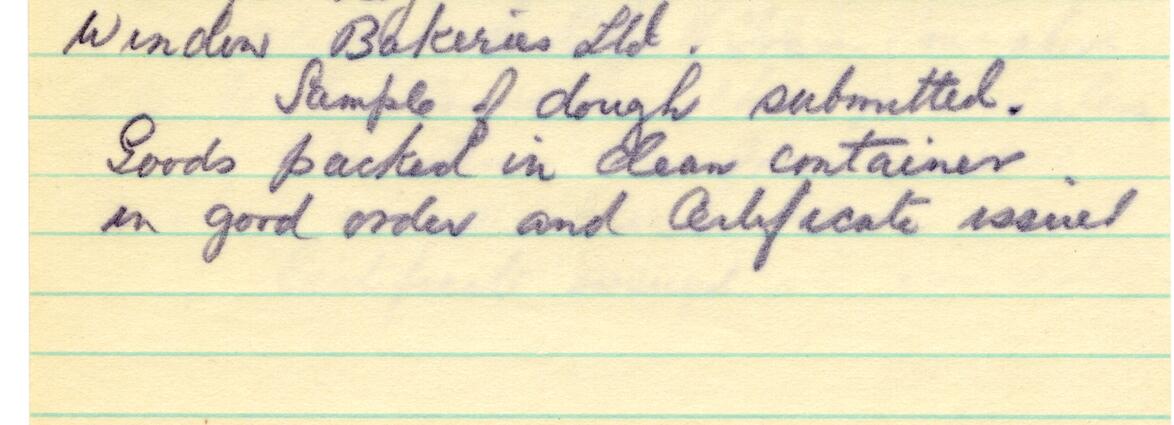 Window Bakeries Ltd.
Sample of dough submitted.
Goods packed in clean container
in good order and Certificate issued